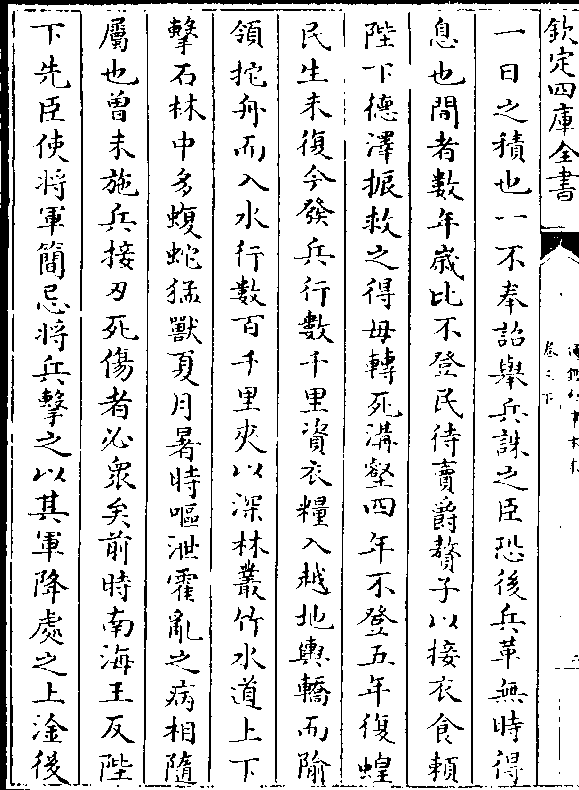 欽定四庫全書
一日之積也一不奉詔舉兵誅之臣恐後兵革無時得
息也間者數年歲比不登民待賣爵贅子以接衣食賴
陛下德澤振救之得毋轉死溝壑四年不登五年復蝗
民生未復今發兵行數千里資衣糧入越地輿轎而隃
領拕舟而入水行數百千里夾以深林叢竹水道上下
擊石林中多蝮蛇猛獸夏月暑時嘔泄霍亂之病相隨
屬也曾未施兵接刃死傷者必衆矣前時南海王反陛
下先臣使將軍簡忌將兵擊之以其軍降處之上淦後